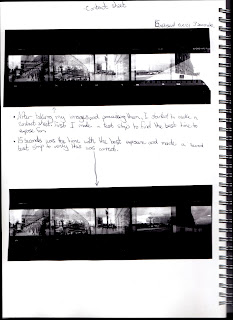 Contact Sheet
• After taking my images and processing them, I started to make a
contact sheet. First I made a test strip to find the best time to
expose for.
• 15 seconds was the time with the best exposure and made a second
test strip to verify this was correct.